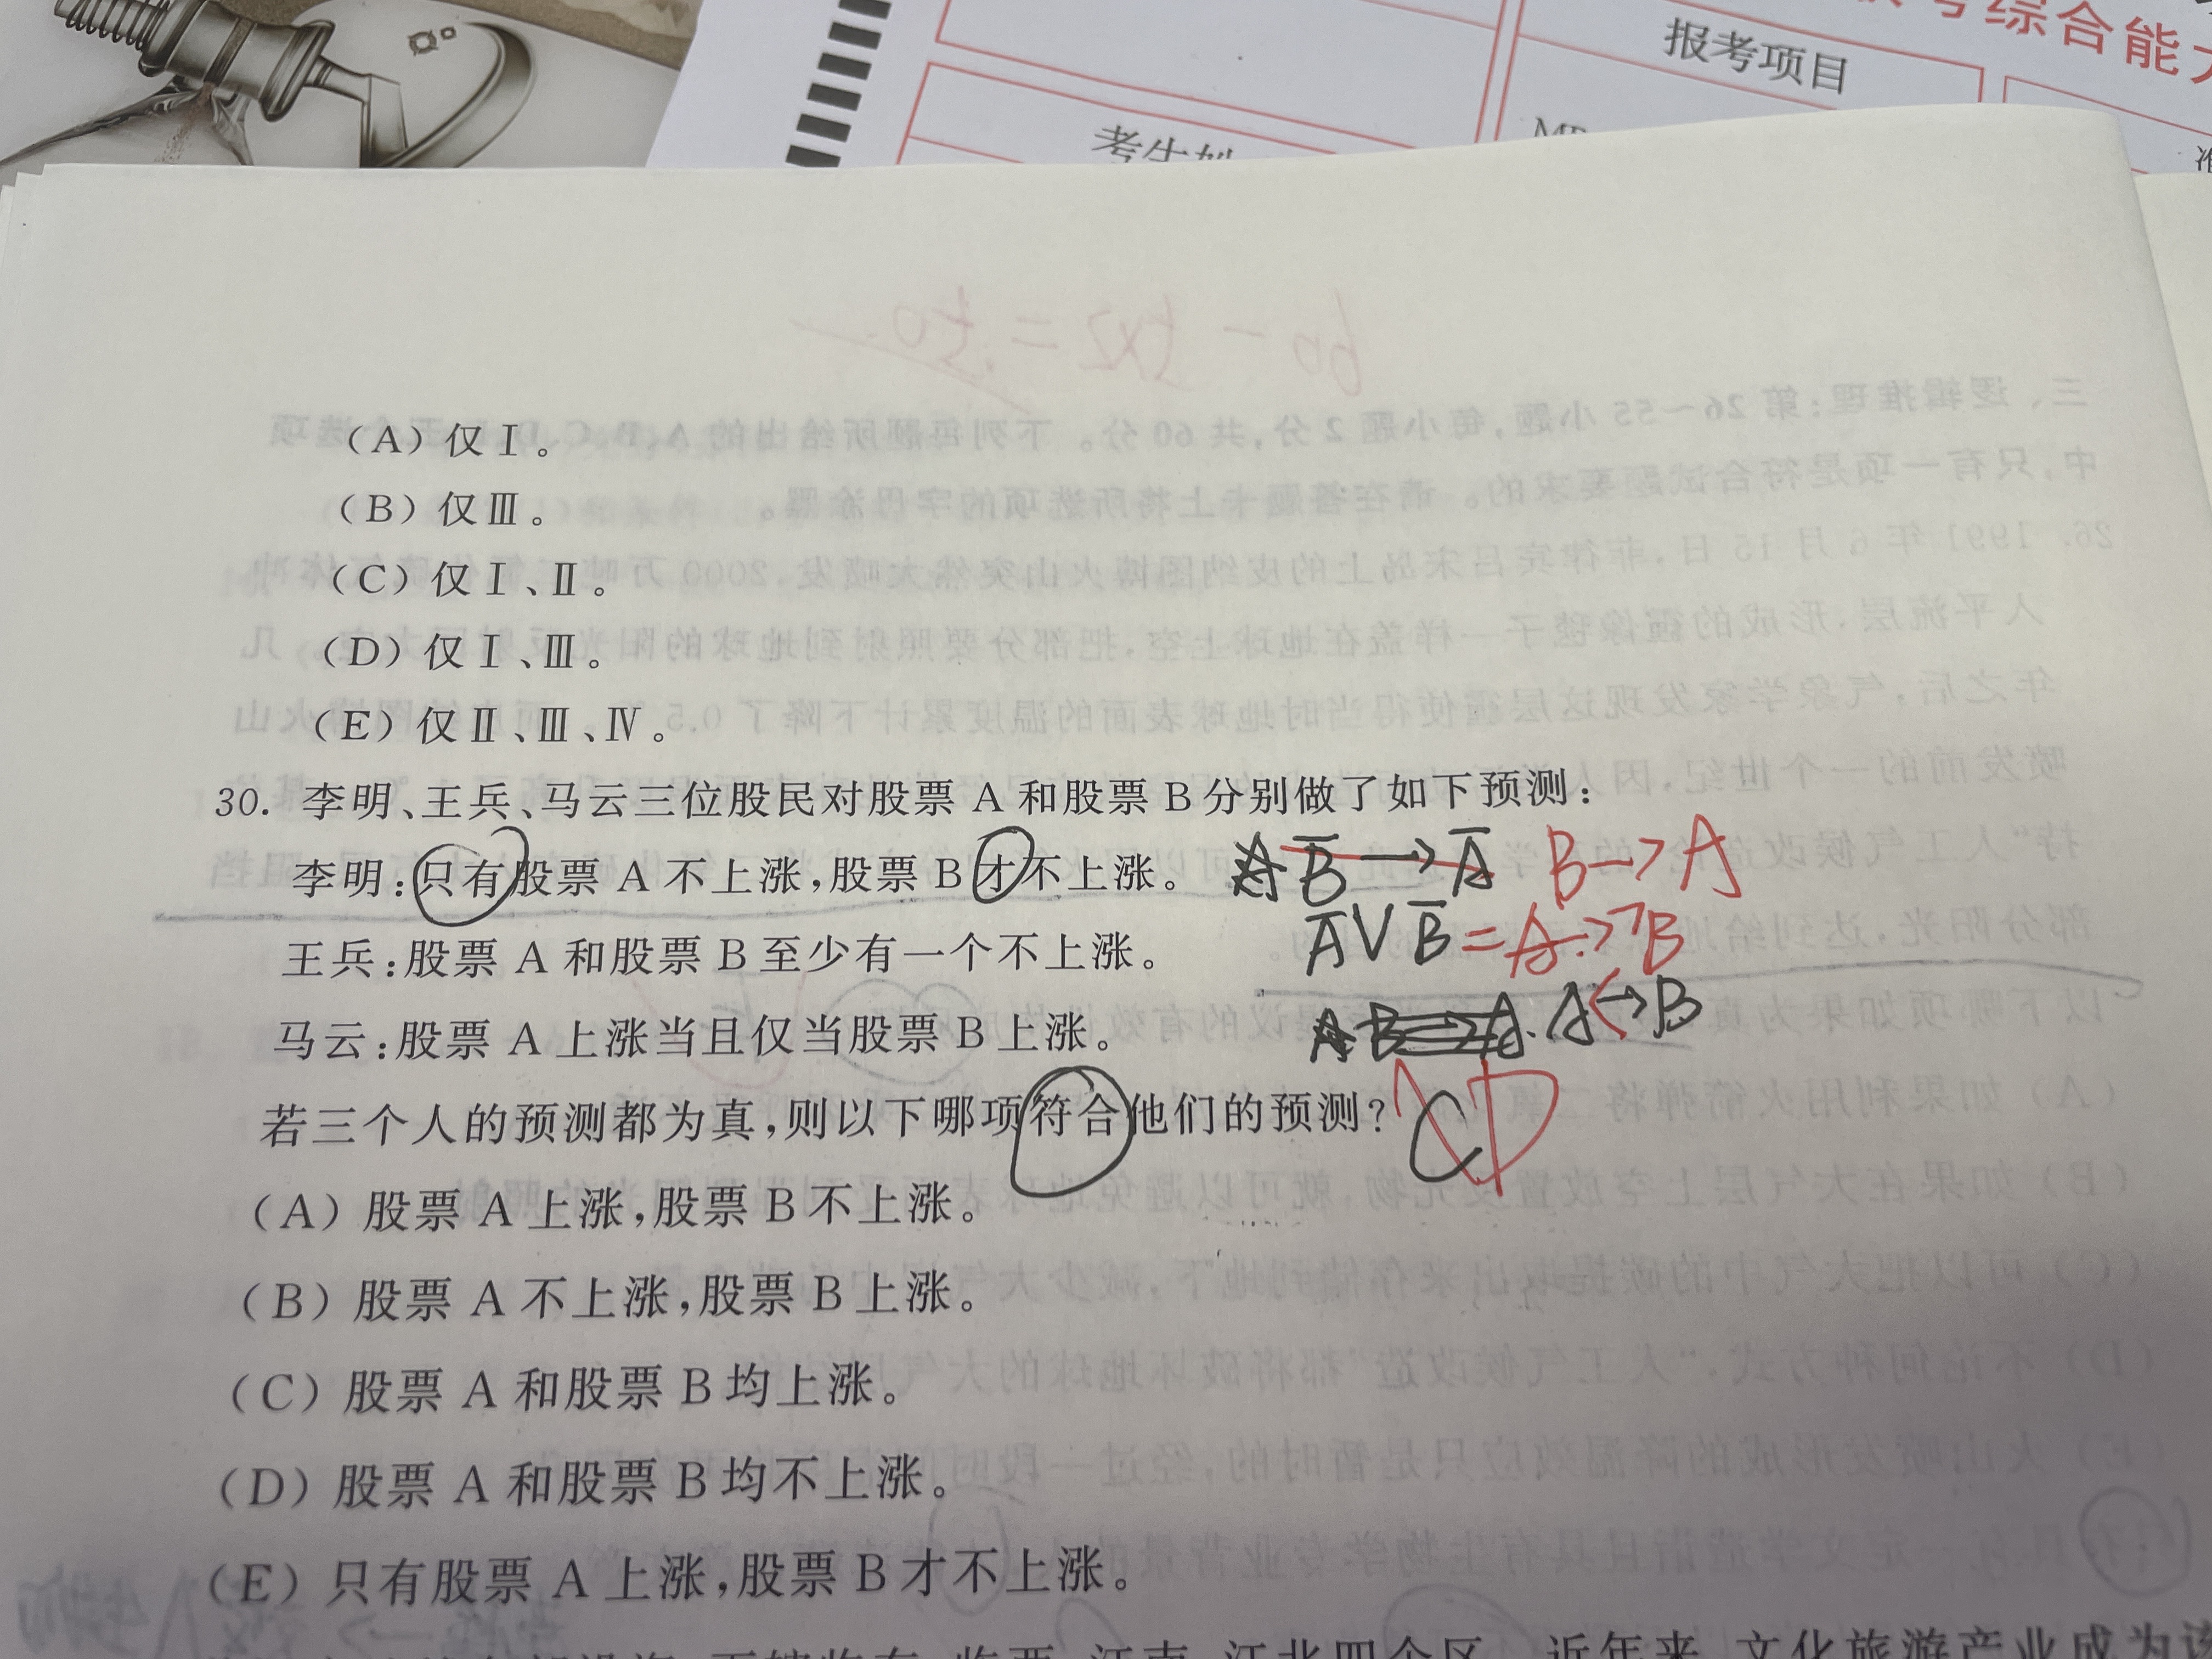 考综合能
报考项目
考生姓
(A) 仅Ⅰ。
(B) 仅Ⅲ。
(C) 仅Ⅰ、Ⅱ。
(D) 仅Ⅰ、Ⅲ。
(E) 仅Ⅱ、Ⅲ、Ⅳ。
30. 李明、王兵、马云三位股民对股票 A 和股票 B 分别做了如下预测:
李明:只有股票 A 不上涨,股票 B 才不上涨。 B̅ → A̅ B → A
王兵:股票 A 和股票 B 至少有一个不上涨。 A̅ ∨ B̅ = A → ¬B
马云:股票 A 上涨当且仅当股票 B 上涨。 A ↔ B
若三个人的预测都为真,则以下哪项符合他们的预测? C D
(A) 股票 A 上涨,股票 B 不上涨。
(B) 股票 A 不上涨,股票 B 上涨。
(C) 股票 A 和股票 B 均上涨。
(D) 股票 A 和股票 B 均不上涨。
(E) 只有股票 A 上涨,股票 B 才不上涨。
江北四个区 近年来 文化旅游产业成为